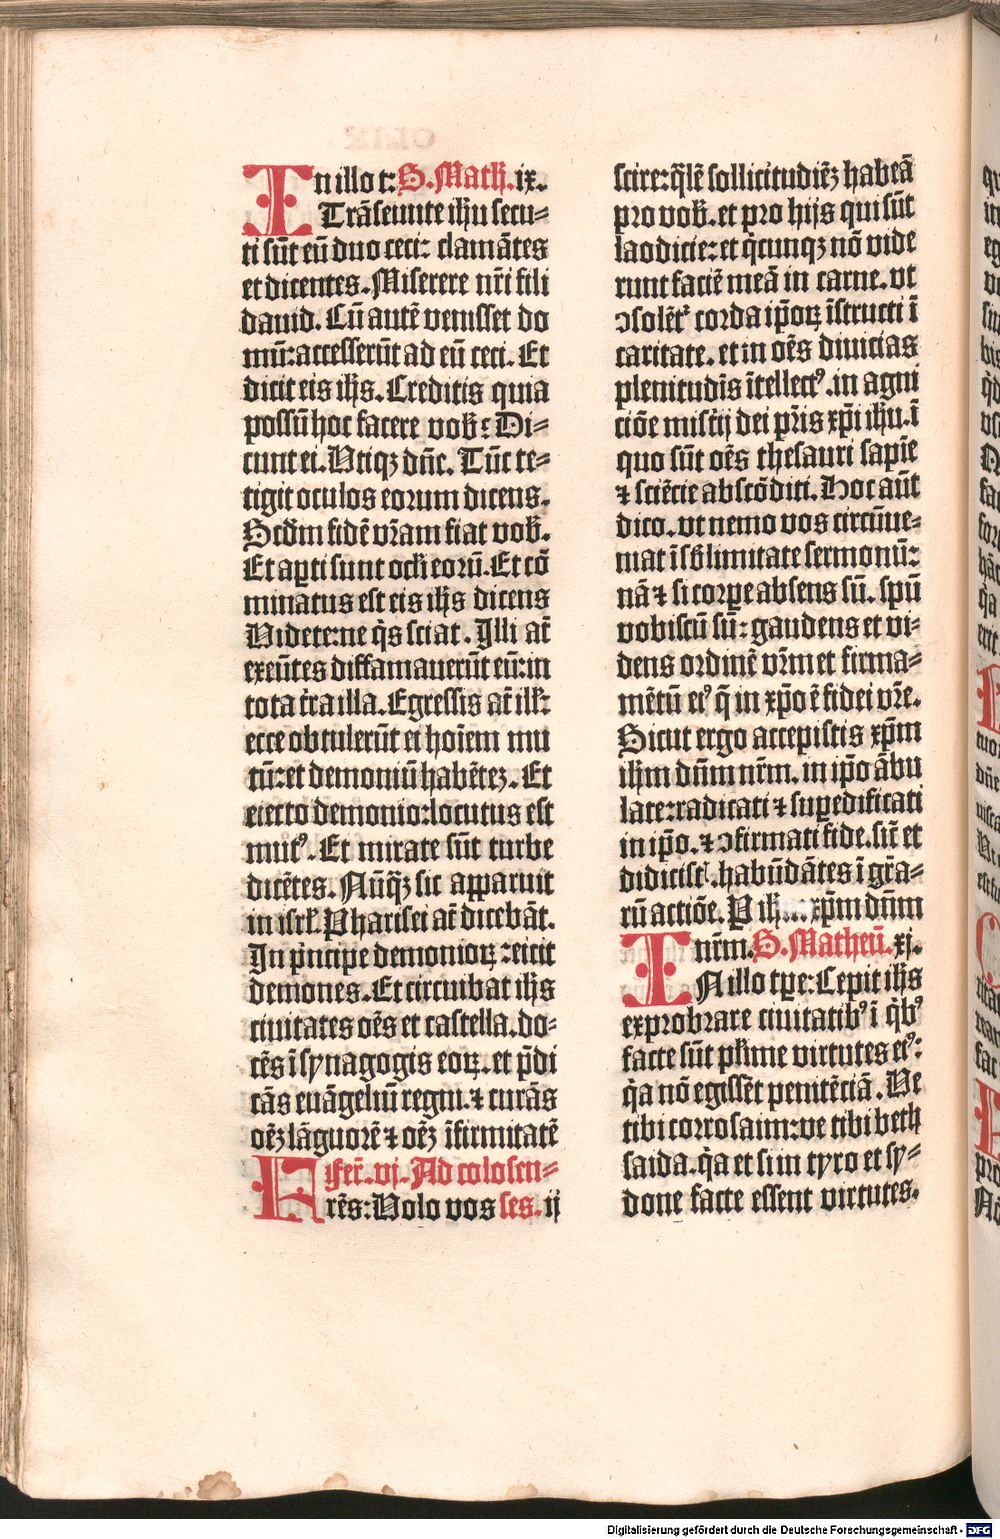 In illo t: S. Math. ix.
Trãseunte ihũ secu-
ti sũt eũ duo ceci: clamãtes
et dicentes. Miserere nr̃i fili
dauid. Cũ autẽ venisset do
mũ: accesserũt ad eũ ceci. Et
dicit eis ihs̃. Creditis quia
possũ hoc facere vob̃: Di-
cunt ei. Vtiqꝫ dñe. Tũc te-
tigit oculos eorum dicens.
Scd̃m fidẽ vr̃am fiat vob̃.
Et aꝑti sunt ocl̃i eorũ. Et cõ
minatus est eis ihs̃ dicens
Videte: ne q̃s sciat. Illi at̃
exeũtes diffamauerũt eũ: in
tota tr̃a illa. Egressis at̃ ill̃:
ecce obtulerũt ei hoĩem mu
tũ: et demoniũ habẽteꝫ. Et
eiecto demonio: locutus est
mutꝰ. Et mirate sũt turbe
dicẽtes. Nũq̃ꝫ sic apparuit
in isrl̃. Pharisei at̃ dicebãt.
In p̃ncipe demonioꝝ: eicit
demones. Et circuibat ihs̃
ciuitates oẽs et castella. do-
cẽs ĩ synagogis eoꝝ. et p̃di
cãs euãgeliũ regni. ⁊ curãs
oẽꝫ lãguorẽ ⁊ oẽꝫ ĩfirmitatẽ
Fer̃. vj. Ad colosen-
Frẽs: Volo vos ses. ij
scire: q̃lẽ sollicitudiẽꝫ habeã
pro vob̃. et pro hijs qui sũt
laodicie: et q̃cunqꝫ nõ vide
runt faciẽ meã in carne. vt
ↄsolẽt᷑ corda ip̃oꝝ ĩstructi ĩ
caritate. et in oẽs diuicias
plenitudĩs ĩtellectꝰ. in agni
ciõe mist̃ij dei pr̃is xp̃i ihũ. ĩ
quo sũt oẽs thesauri sapiẽ
⁊ sciẽcie abscõditi. Hoc aũt
dico. vt nemo vos circũue-
niat ĩ sb̃limitate sermonũ:
nã ⁊ si corpe absens sũ. spũ
vobiscũ sũ: gaudens et vi-
dens ordinẽ vr̃m et firma-
mẽtũ eiꝰ q̃ in xp̃o ẽ fidei vr̃e.
Sicut ergo accepistis xp̃m
ihm̃ dñm nr̃m. in ip̃o ãbu
late: radicati ⁊ suꝑedificati
in ip̃o. ⁊ ↄfirmati fide. sic̃ et
didicist̃. habũdãtes ĩ gr̃a-
rũ actiõe. P ih̃... xp̃m dñm
nr̃m. S. Matheũ. xj.
IN illo tꝑe: Cepit ihs̃
exprobrare ciuitatibꝰ ĩ q̃bꝰ
facte sũt pl̃ime virtutes eiꝰ:
q̃a nõ egissẽt penitẽciã. Ve
tibi corrosaim: ve tibi beth
saida. q̃a et si in tyro et sy-
done facte essent virtutes.
Digitalisierung gefördert durch die Deutsche Forschungsgemeinschaft - DFG